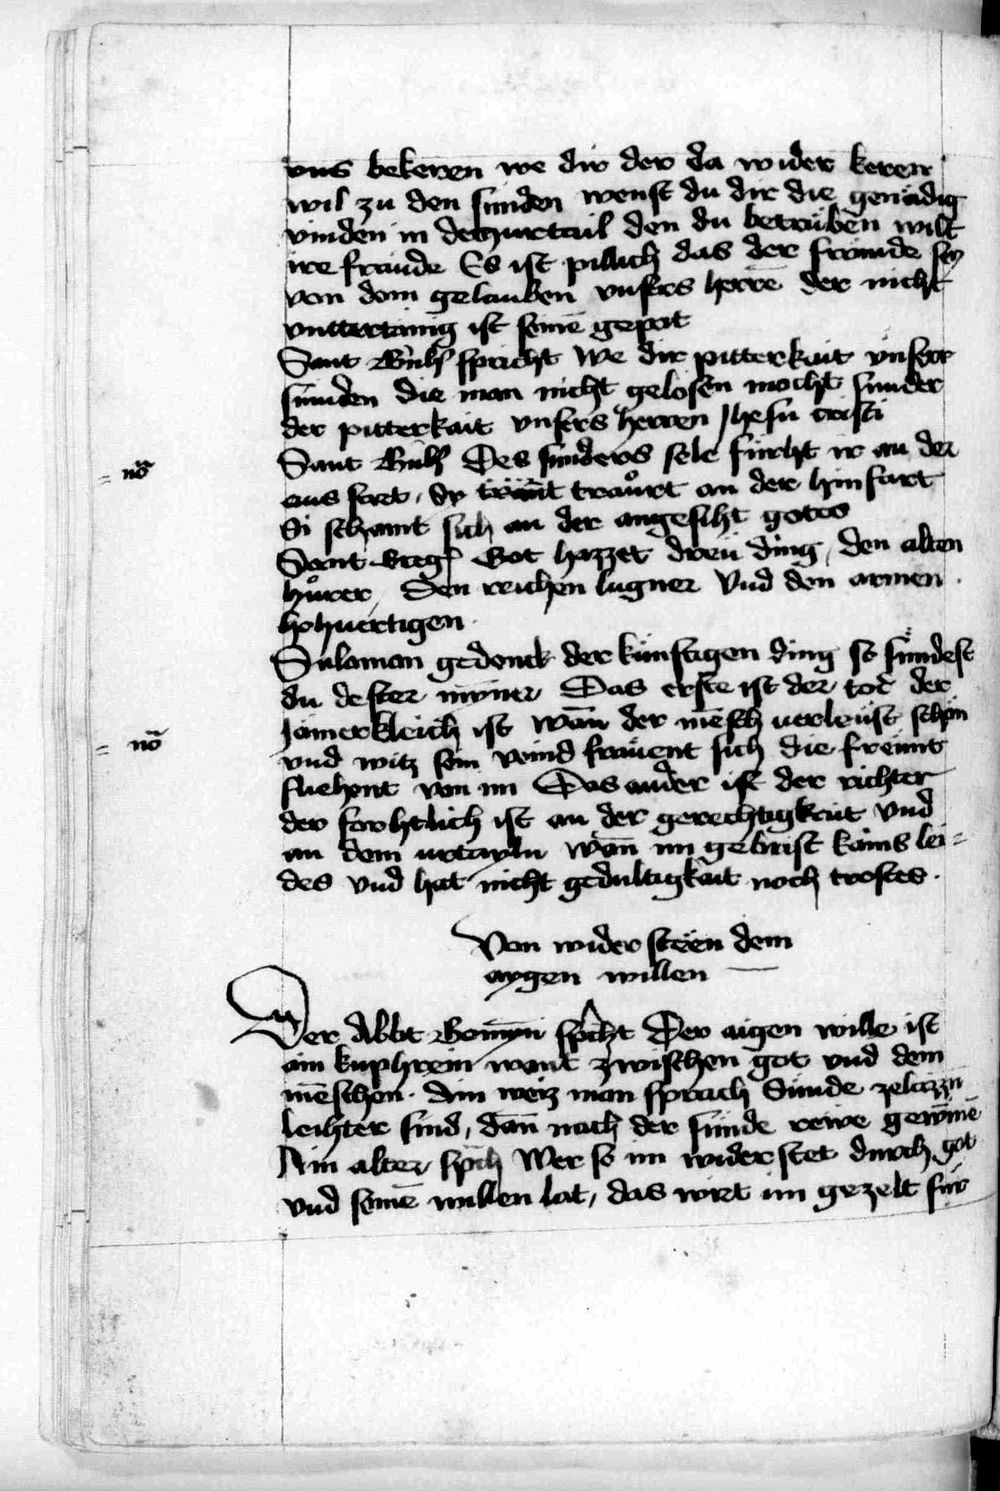 vns bekeren we dir der da wider keren
wil zu den sunden wenst du dir die genädig
vinden in dem vrtail den du betrüben wilt
ire fraude Es ist pillich das der frömde sey
von dem gelauben vnsers herrē der nicht
vnttertänig ist seinē gepot
Sant spricht We dir pitterkait vnserr
sunden die man nicht gelosen mocht sunder
der pitterkait vnsers herren Jhesu cristi
= nō Sant Des sunders sele fürcht ir an der
aus fart, sy traůrt an der hinfart
Si schamt sich an der angesiht gotes
Sant Greg Got hazzet dreü ding, den alten
hůrer, den reichen lugner Vnd den armen
hohuertigen.
Salaman gedenck der künftigen ding so sündest
du dester mynner Das erste ist der tod der
= nō Jämerkleich ist wān der mēsch uerleüst schön
vnd witz sein veind fräuent sich die freünt
fliehent von im Das ander ist der richter
der forhtlich ist an der gerechtigkait vnd
an dem urtayln wān im gebrist kains lei=
des vnd hat nicht gedultigkait noch trostes.
Von wider steen dem
aygen willen
Der Abbt spricht Der aigen wille ist
ain kuphrein want zwischen got vnd dem
mēschen. Ain weiz man sprach Sünde zelazzn
leihter sind, dan nach der sünde rewe gewinē
Ain alter spch Wer so im wider stet durch got
vnd seinē willen lat, das wirt im gezelt für